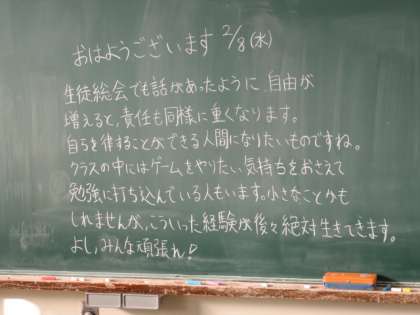 おはようございます 2/8(水)
生徒総会でも話があったように、自由が
増えると、責任も同様に重くなります。
自らを律することができる人間になりたいものですね。
クラスの中にはゲームをやりたい気持ちをおさえて
勉強に打ち込んでいる人もいます。小さなことかも
しれませんが、こういった経験が後々絶対生きてきます。
よし、みんな頑張れ!